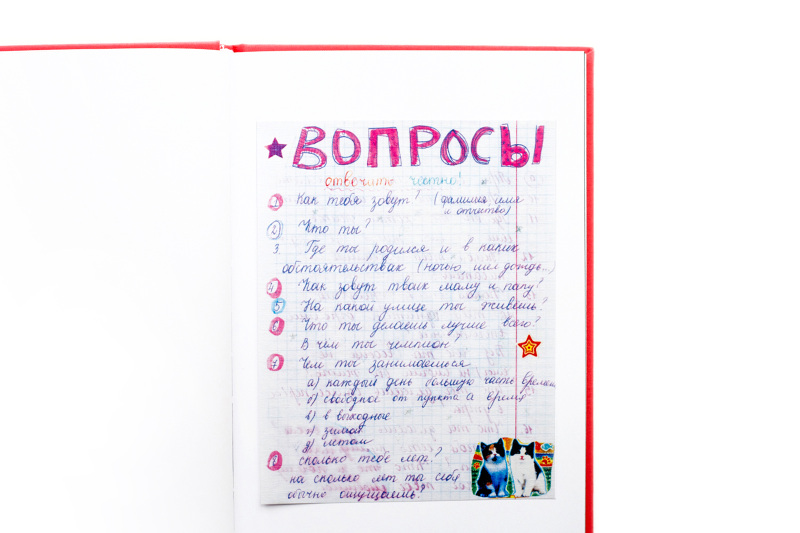 ВОПРОСЫ
отвечать честно!
1 Как тебя зовут? (фамилия, имя
и отчество)
2 Кто ты?
3. Где ты родился и в каких
обстоятельствах (ночью, шёл дождь...)
4 Как зовут твоих маму и папу?
5 На какой улице ты живёшь?
6 Что ты делаешь лучше всего?
В чём ты чемпион?
7 Чем ты занимаешься
а) каждый день большую часть времени
б) свободное от пункта а время
в) в выходные
г) зимой
д) летом
8 сколько тебе лет?
на сколько лет ты себя
обычно ощущаешь?